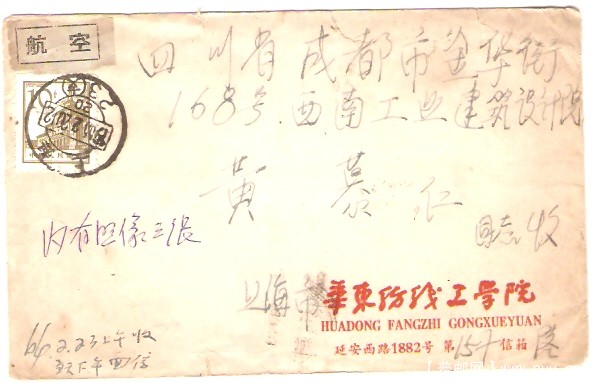 航空
四川省成都市金华街
168号西南工业建筑设计院
黄慕仁
同志收
内有照像三张
上海市華東纺织工学院
HUADONG FANGZHI GONGXUEYUAN
延安西路1882号 第154信箱
66.2.23上午收